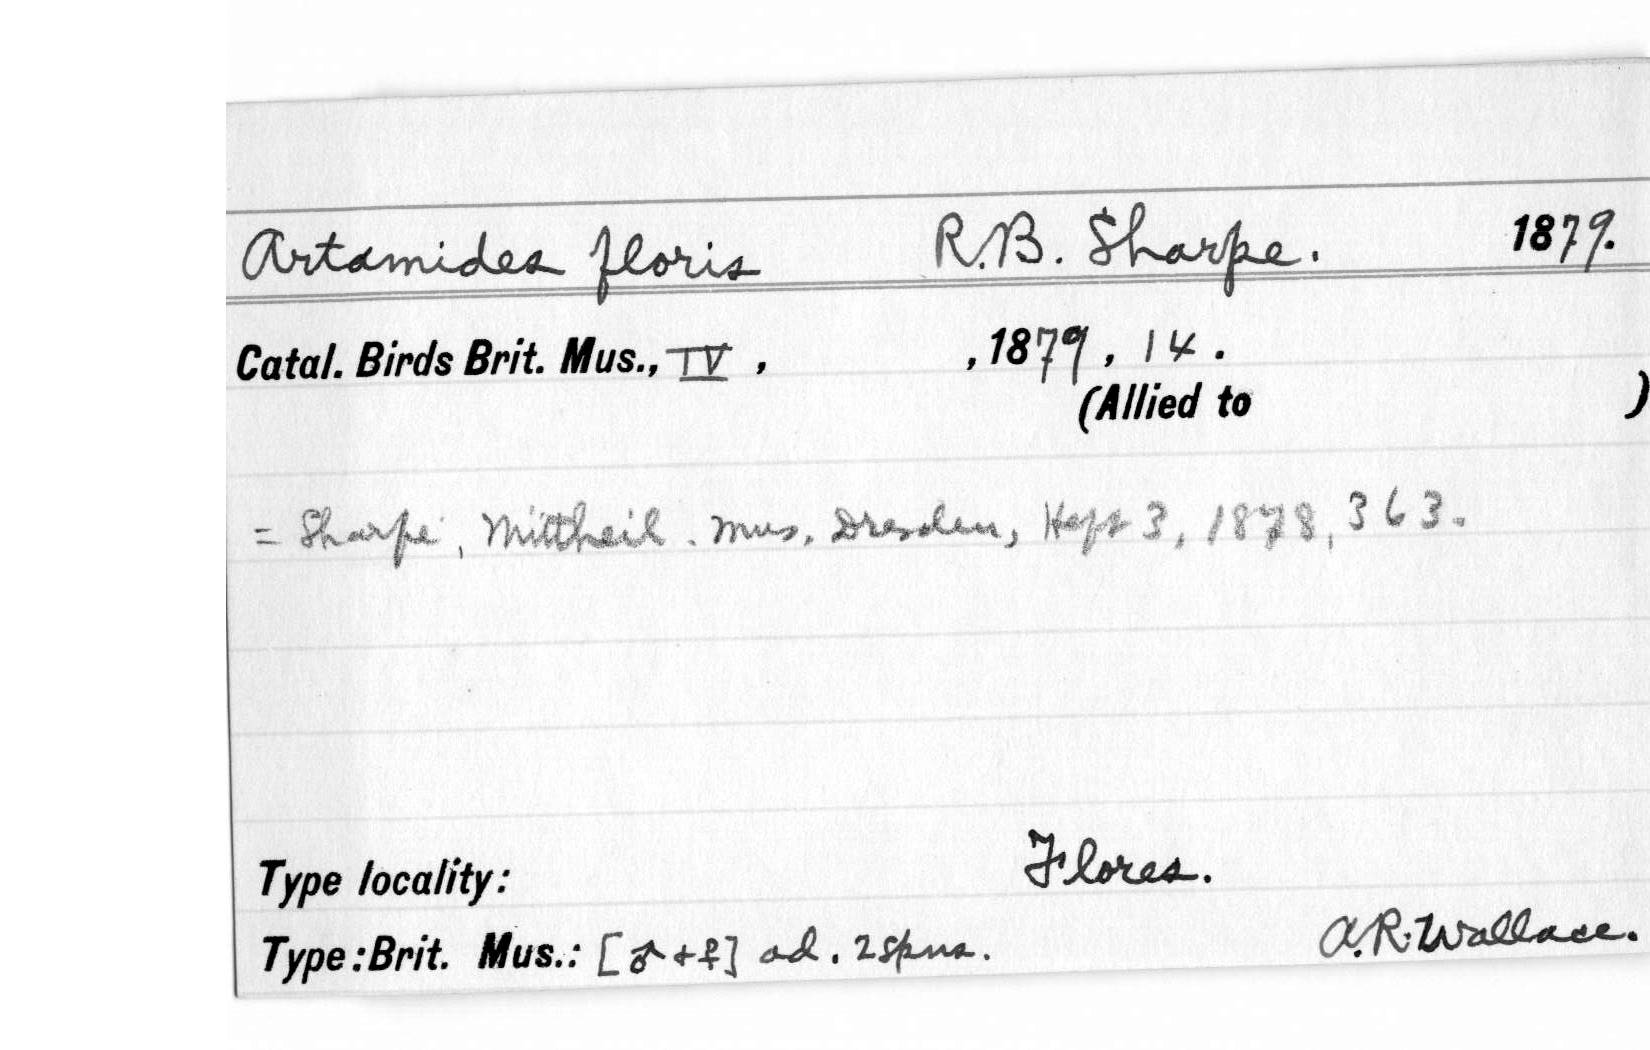 Artamides floris R.B. Sharpe. 1879.
Catal. Birds Brit. Mus., IV , , 1879, 14.
(Allied to )
= Sharpe, Mittheil. Mus. Dresden, Heft 3, 1878, 363.
Type locality: Flores.
Type: Brit. Mus.: [♂+♀] ad. 2 spns. A.R. Wallace.